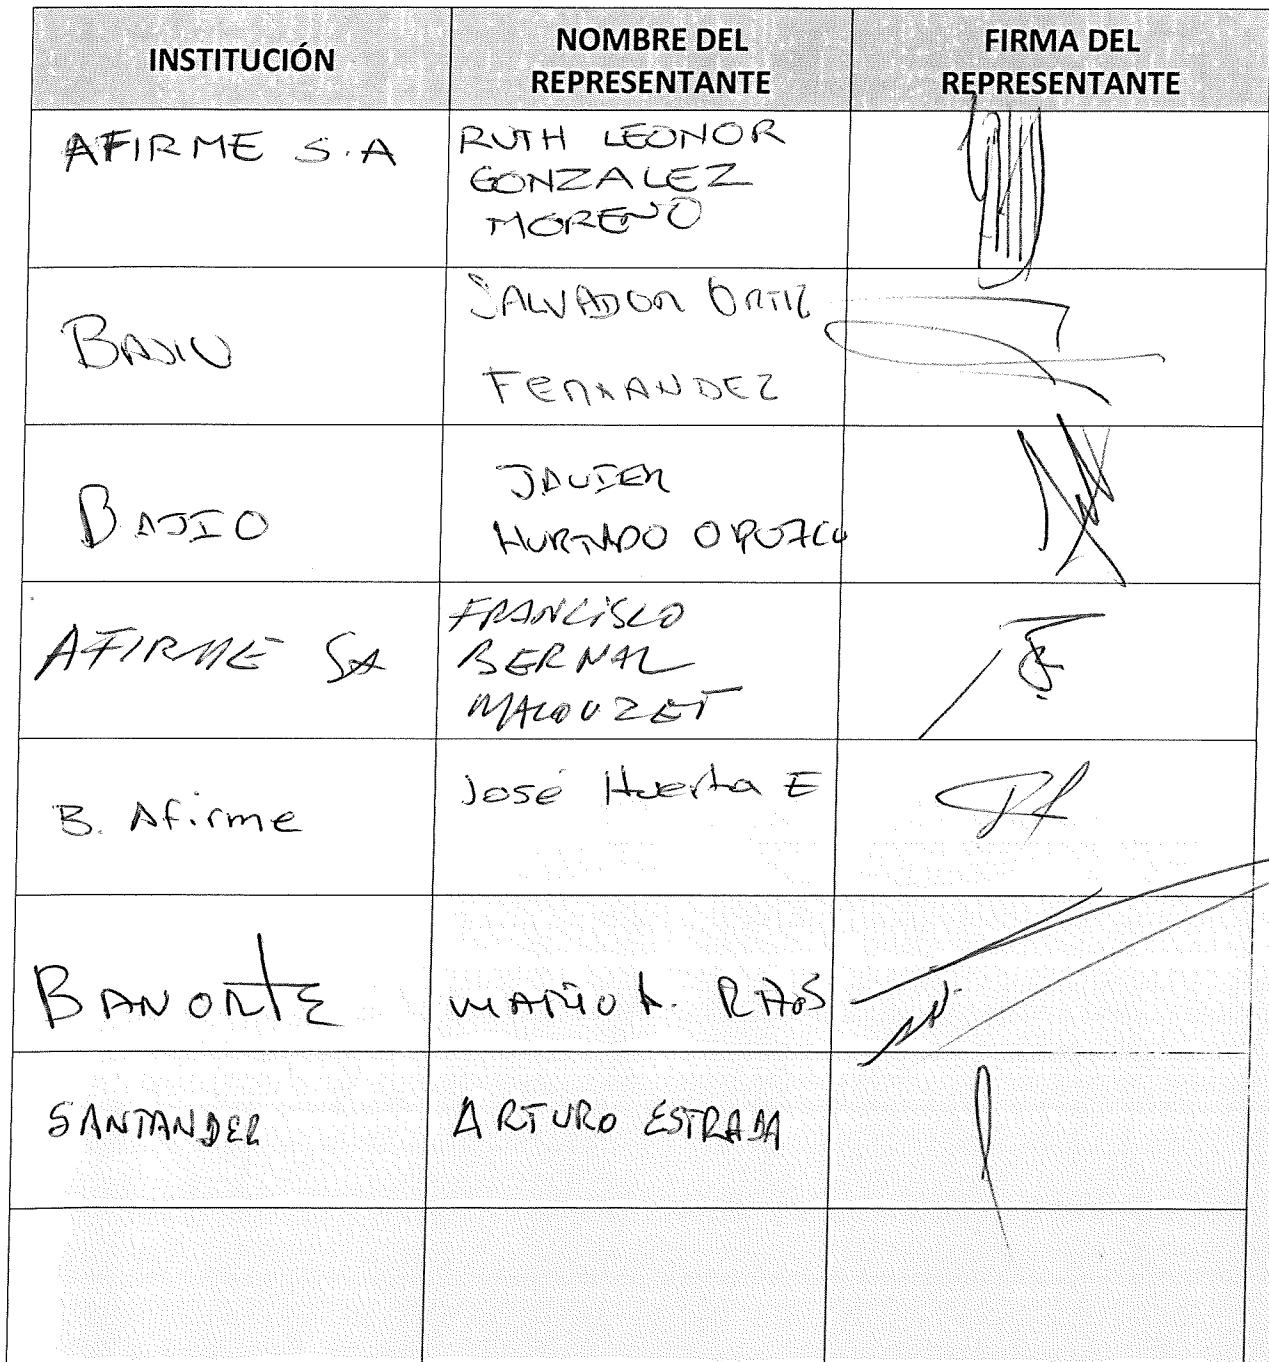 INSTITUCIÓN
NOMBRE DEL
REPRESENTANTE
FIRMA DEL
REPRESENTANTE
AFIRME S.A
RUTH LEONOR
GONZALEZ
MORENO
BAJIO
SALVADOR ORTIZ
FERNANDEZ
BAJIO
JAVIER
HURTADO OROZCO
AFIRME SA
FRANCISCO
BERNAL
B. Afirme
José Huerta E
BANORTE
MARIO A. RIOS
SANTANDER
ARTURO ESTRADA